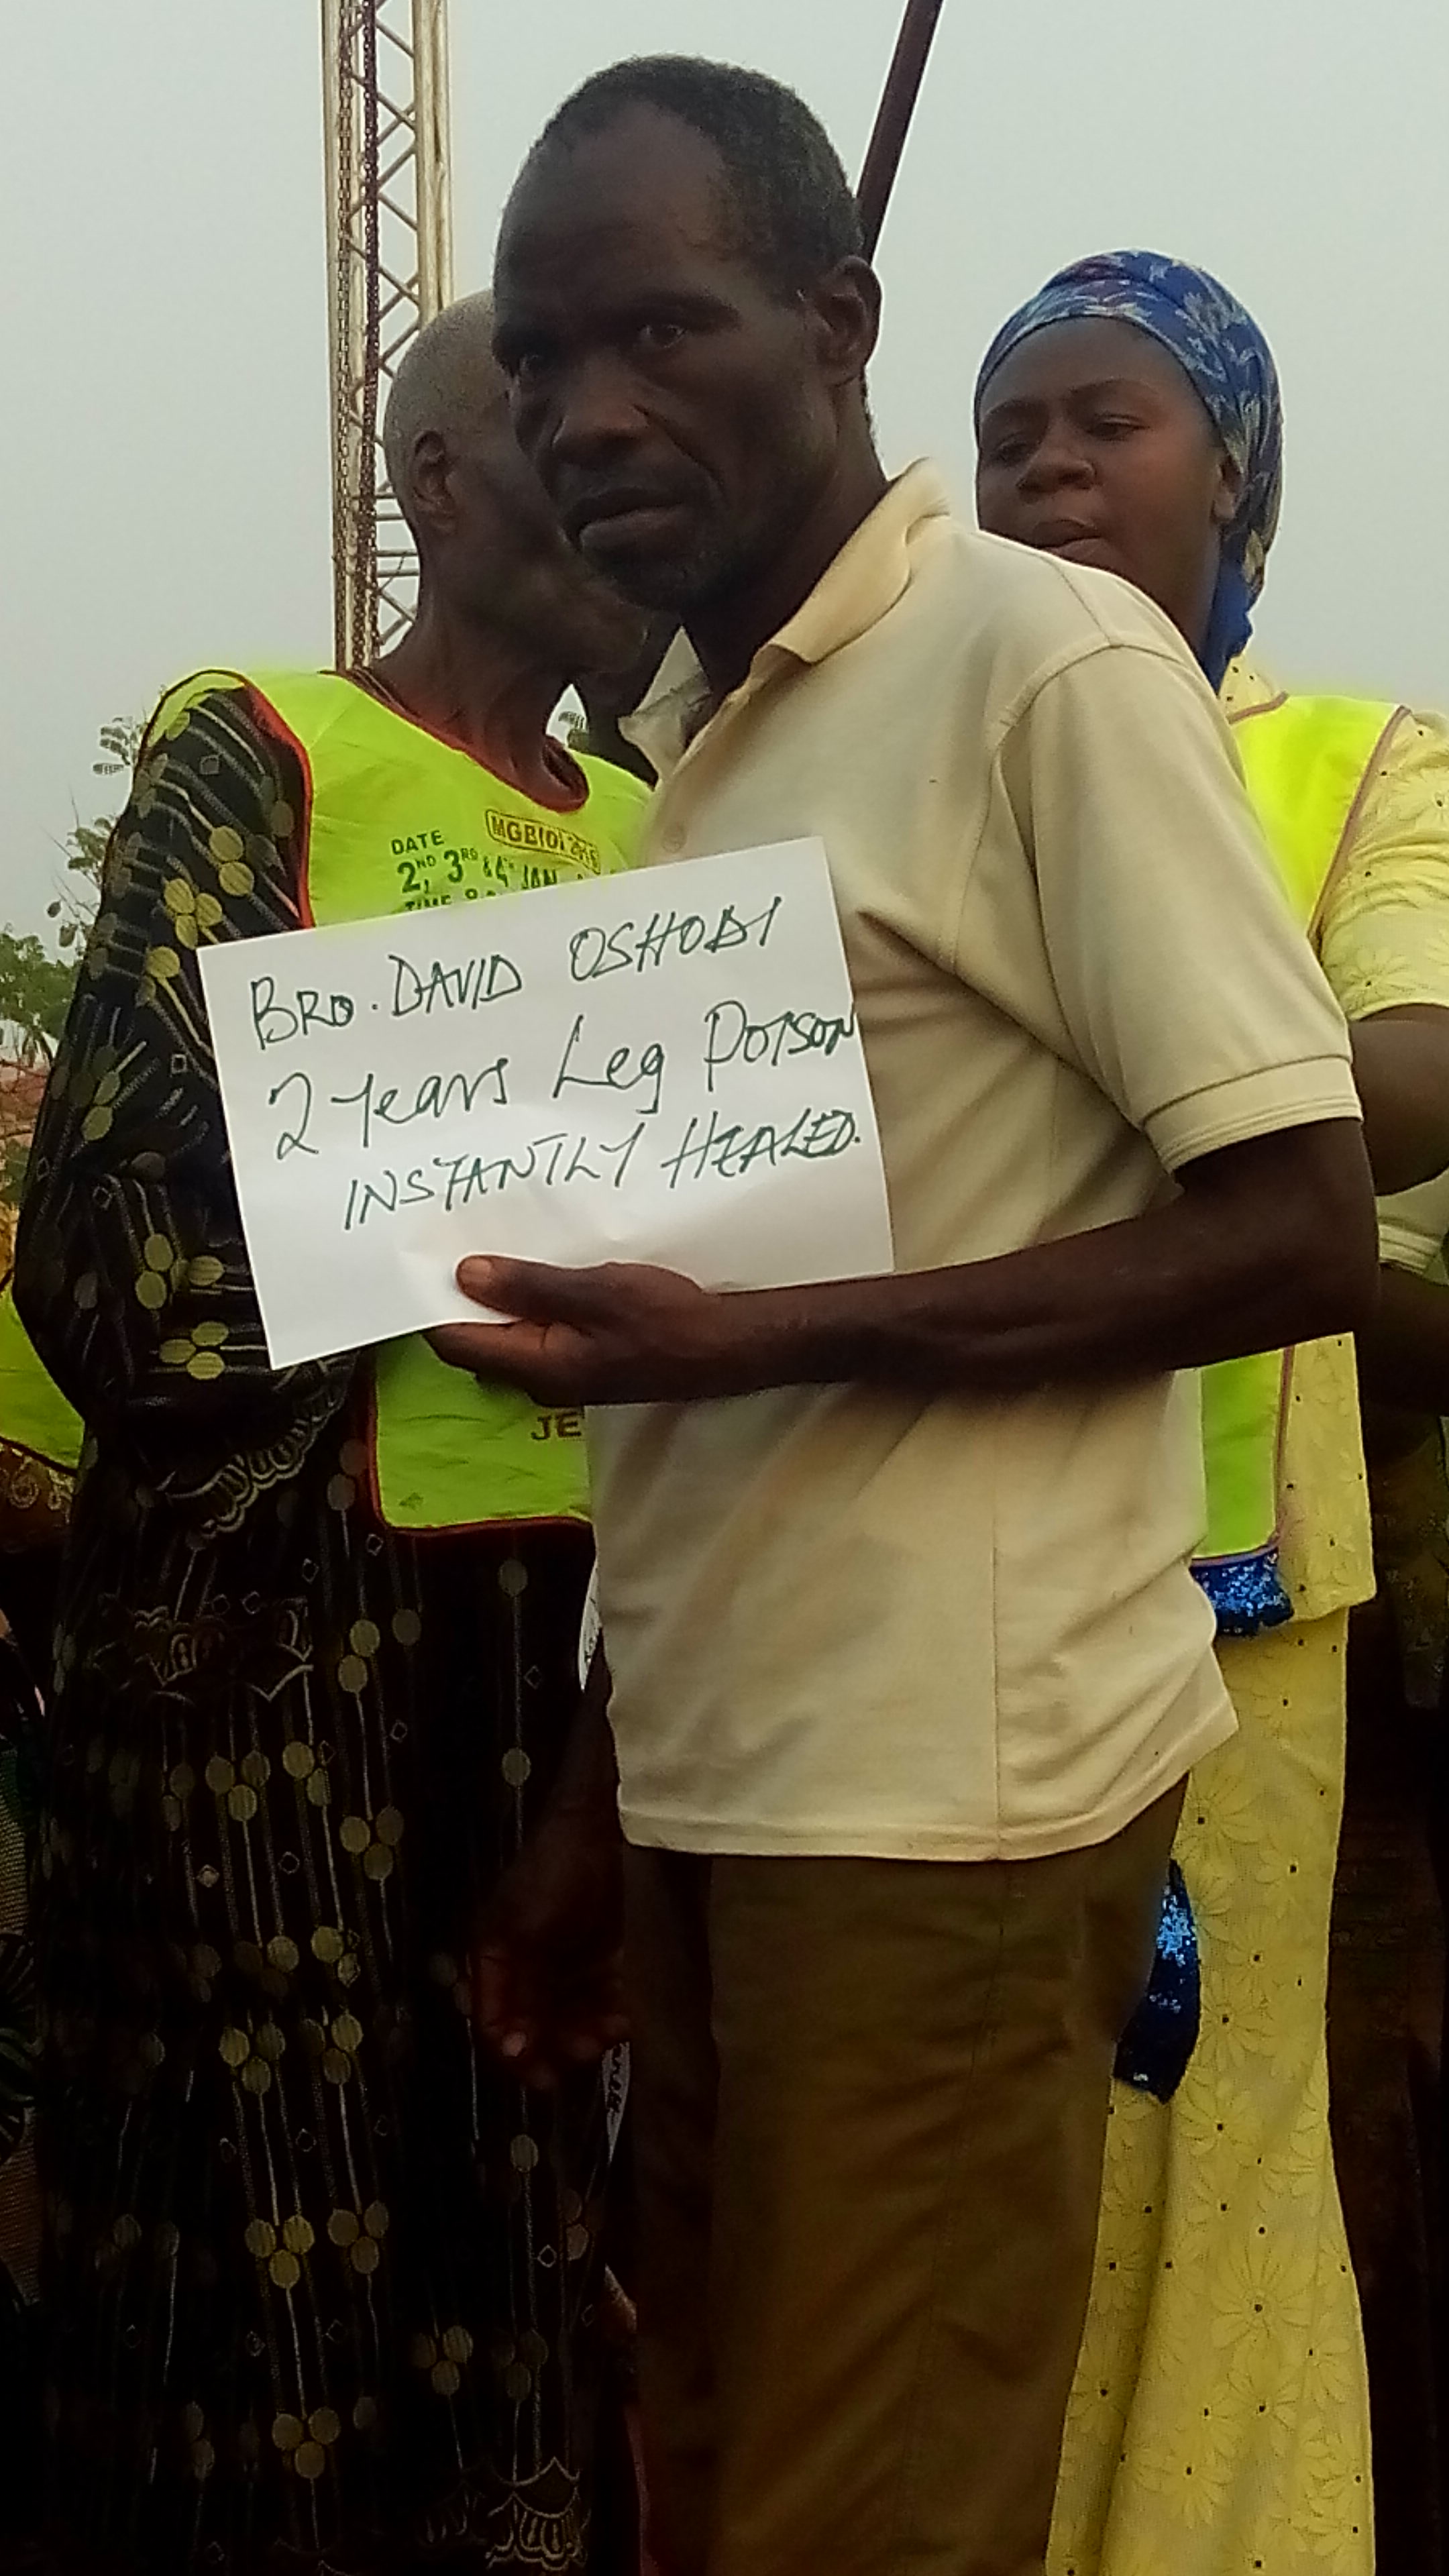 MGBIDI 2016
DATE
2ND, 3RD & 4TH JAN
TIME
BRO. DAVID OSHODI
2 Years Leg Poison
INSTANTLY HEALED.
JE